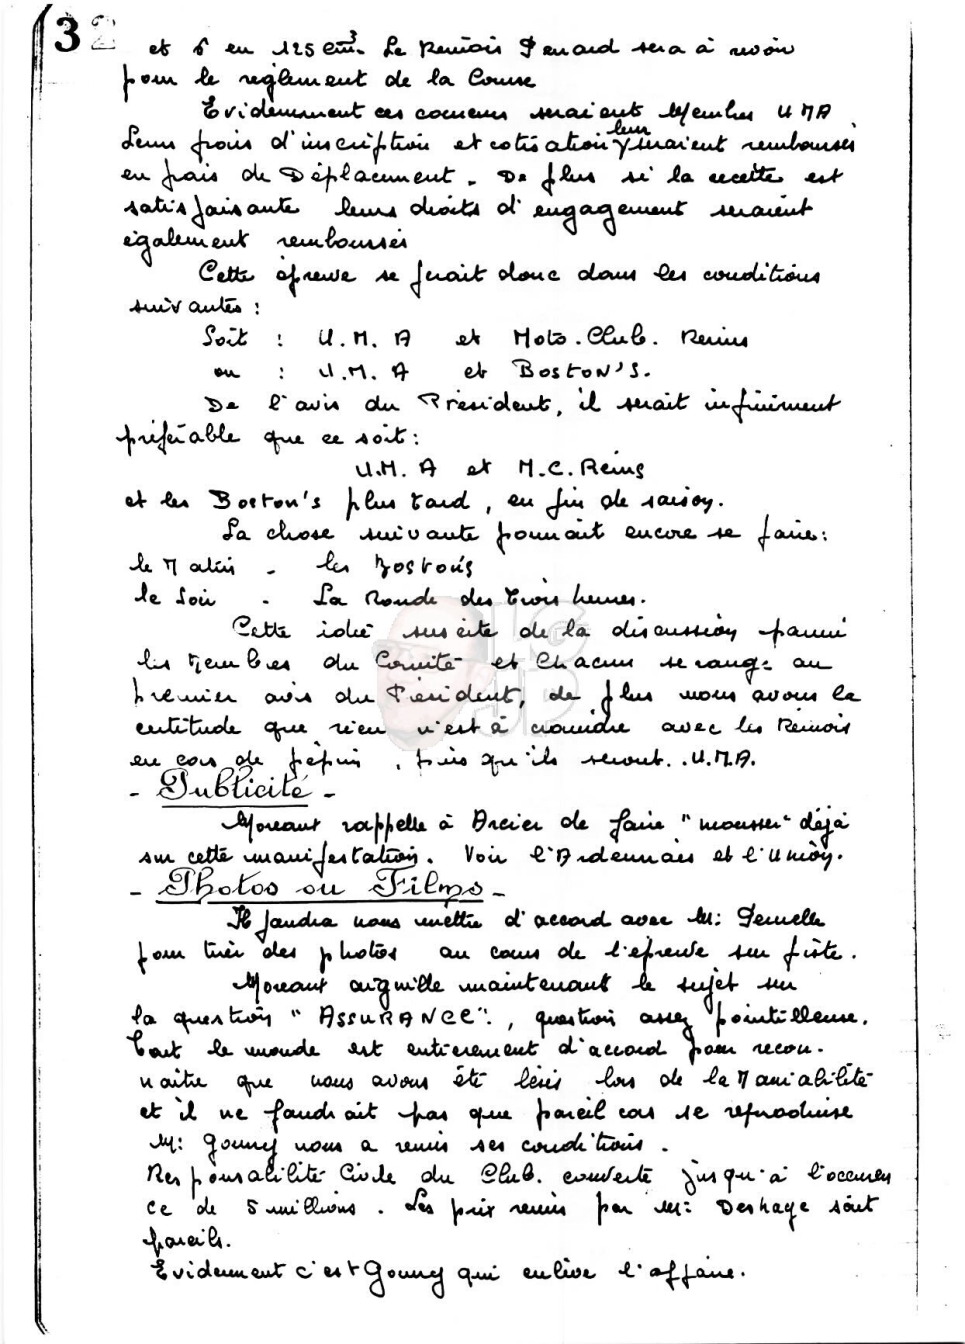 32
et 6 en 125 cm³. Le Rémois Penard sera à revoir
pour le règlement de la Course
Evidemment ces coureurs seraient Membres U M A.
Leurs frais d'inscription et cotisation leur seraient remboursés
en frais de Déplacement. De plus si la recette est
satisfaisante leurs droits d'engagement seraient
également remboursés
Cette épreuve se ferait donc dans les conditions
suivantes :
Soit : U.M.A et Moto.Club. Reims
ou : U.M.A et BOSTON'S.
De l'avis du Président, il serait infiniment
préférable que ce soit :
U.M.A et M.C. Reims
et les Boston's plus tard, en fin de saison.
La chose suivante pourrait encore se faire :
le Matin - les Bostons
le Soir - La Ronde des Trois heures.
Cette idée suscite de la discussion parmi
les Membres du Comité et Chacun se range au
premier avis du Président, de plus nous avons la
certitude que rien n'est à craindre avec les Rémois
en cas de pépin, puis qu'ils seront.. U.M.A.
- Publicité -
Moreaux rappelle à Arcier de faire "mousser" déjà
sur cette manifestation. Voir l'Ardennais et l'Union.
- Photos ou Films -
Il faudra nous mettre d'accord avec Mr:
pour tirer des photos au cours de l'épreuve sur piste.
Moreaux aiguille maintenant le sujet sur
la question "ASSURANCE"., question assez pointilleuse.
Tout le monde est entièrement d'accord pour recon-
naître que nous avons été lésés lors de la Maniabilité
et il ne faudrait pas que pareil cas se reproduise
Mr: Gouny nous a remis ses conditions.
Responsabilité Civile du Club. couverte jusqu'à l'occuren
ce de 5 millions. Les prix remis par Mr: Deshaye sont
pareils.
Evidement c'est Gouny qui enlève l'affaire.
LC
JD